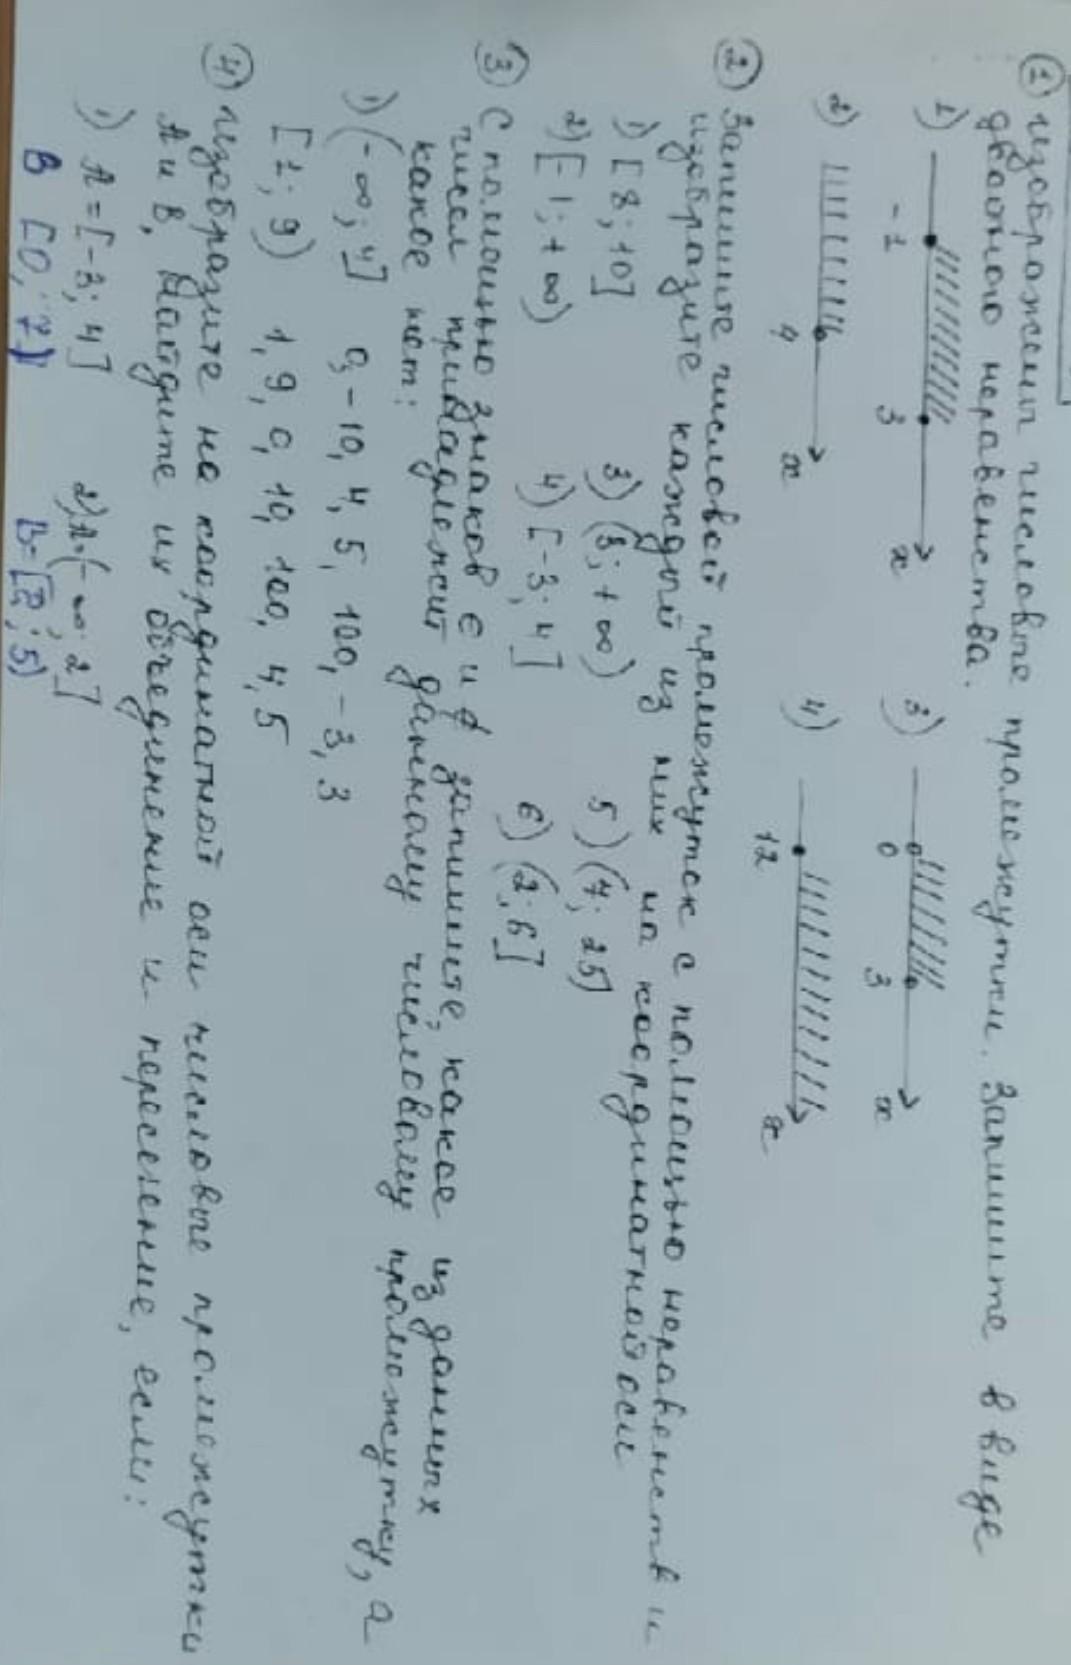 ① изображены числовые промежутки. Запишите в виде
двойного неравенства.
1) -1 3 x
3) 0 3 x
2) 4 x
4) 12 x
② Запишите числовой промежуток с помощью неравенств и
изобразите каждый из них на координатной оси
1) [8; 10] 3) (3; +∞) 5) (7; 25]
2) [-1; +∞) 4) [-3; 4] 6) (2; 6]
③ С помощью знаков ∈ и ∉ запишите, какое из данных
чисел принадлежит данному числовому промежутку, а
какое нет:
1) (-∞; 4] 0, -10, 4, 5, 100, -3, 3
[1; 9) 1, 9, 0, 10, 100, 4, 5
④ изобразите на координатной оси числовые промежутки
A и B. Найдите их объединение и пересечение, если:
1) A = [-3; 4] 2) A = (-∞; 2]
B [0; 7) B = [2; 5)